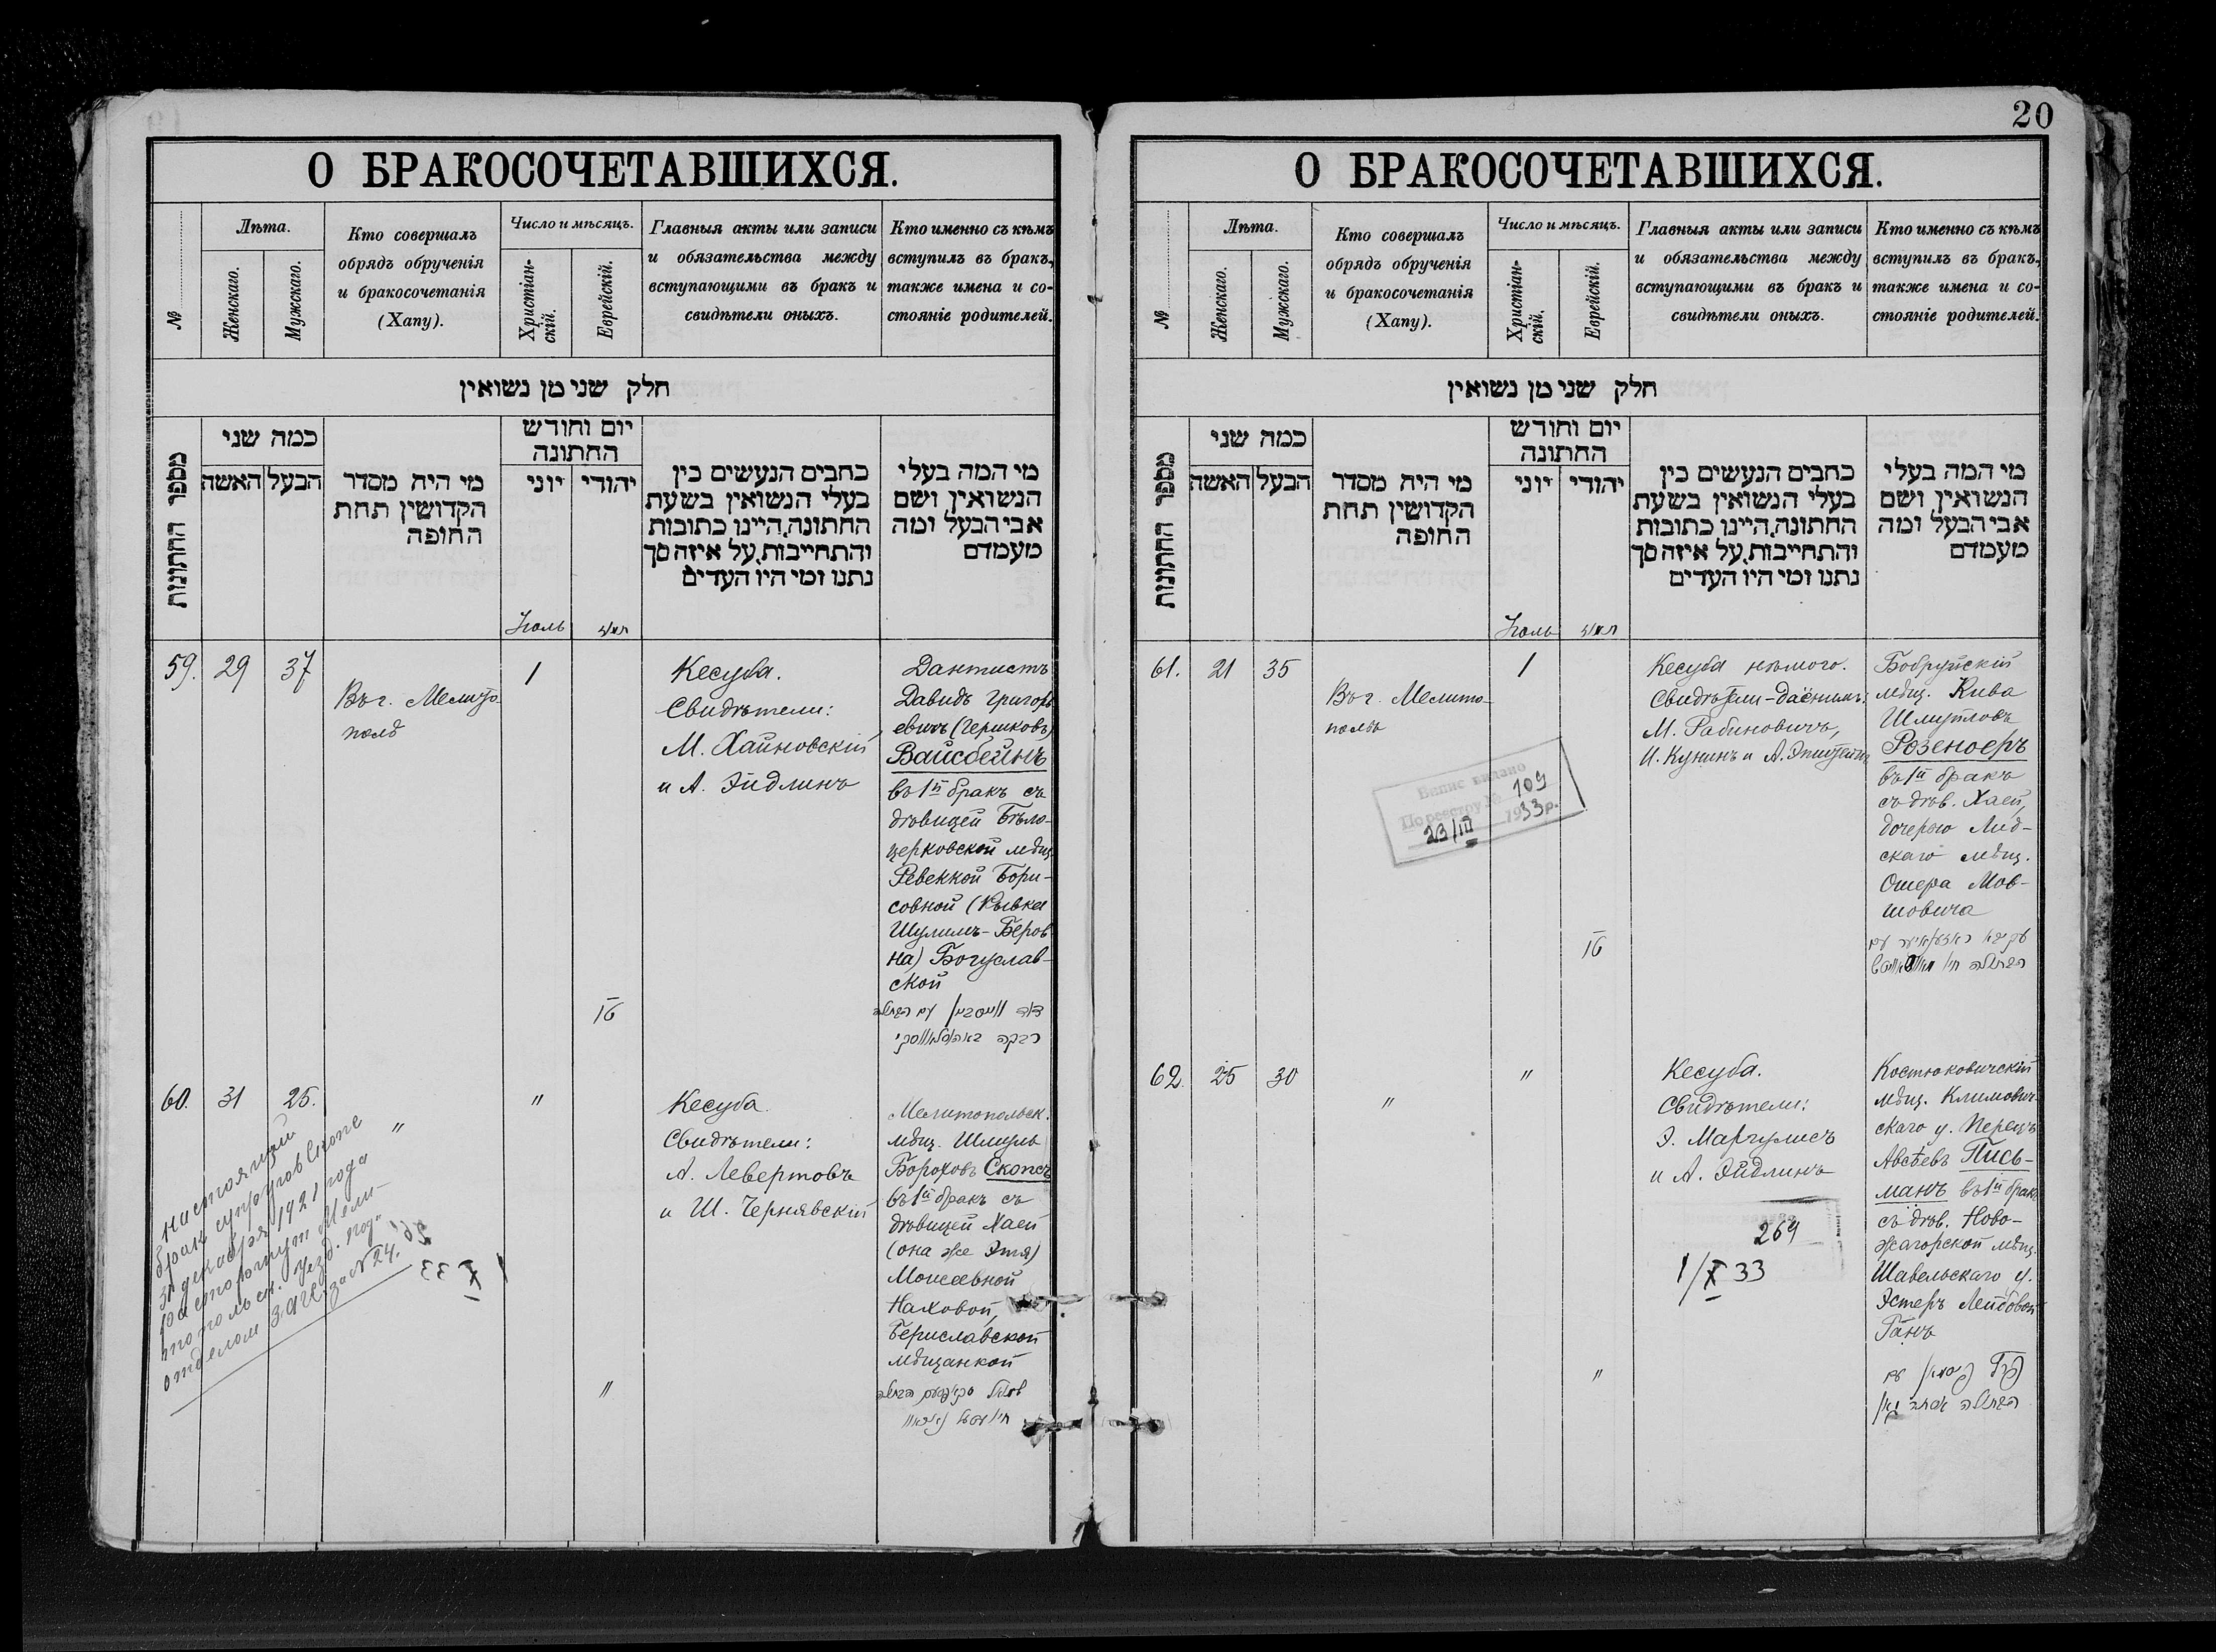 О БРАКОСОЧЕТАВШИХСЯ.
№
Лѣта.
Женскаго.
Мужскаго.
Кто совершалъ
обрядъ обрученія
и бракосочетанія
(Хапу).
Число и мѣсяцъ.
Христіан-
скій.
Еврейскій.
Главныя акты или записи
и обязательства между
вступающими въ бракъ и
свидѣтели оныхъ.
Кто именно съ кѣмъ
вступилъ въ бракъ,
также имена и со-
стояніе родителей.
חלק שני מן נשואין
מספר החתונות
כמה שני
הבעל האשה
מי היה מסדר
הקדושין תחת
החופה
יום וחודש
החתונה
יוני
יהודי
כתבים הנעשים בין
בעלי הנשואין בשעת
החתונה, היינו כתובות
והתחייבות, על איזה סך
נתנו ומי היו העדים
מי המה בעלי
הנשואין ושם
אבי הבעל ומה
מעמדם
Іюль
תמוז
59. 29 37
Въ г. Мелито-
полѣ
1
Кесуба.
Свидѣтели:
М. Хайновскій
и А. Эйдлинъ
Дантистъ
Давидъ Григорь-
евичъ (Гершковъ)
Вайсбейнъ
въ 1й бракъ съ
дѣвицей Бѣло-
церковской мѣщ.
Ревеккой Бори-
совной (Рывка
Шулимъ-Беров-
на) Богуслав-
ской
דוד ווייסביין עם הבתולה
רבקה באהוסלאווסקי
60. 31 25.
"
"
"
Кесуба.
Свидѣтели:
А. Левертовъ
и Ш. Чернявскій
Мелитопольск.
мѣщ. Шмуль
Бороховъ Скопсъ
въ 1й бракъ съ
дѣвицей Хаей
(она же Этя)
Моисеевной
Наховой,
Бериславской
мѣщанкой
настоящий
брак супругов Скопс
31 декабря 1921 года
расторгнут Мели-
топольск. Уезд. под-
отделом ЗАГС за № 24.
20
О БРАКОСОЧЕТАВШИХСЯ.
№
Лѣта.
Женскаго.
Мужскаго.
Кто совершалъ
обрядъ обрученія
и бракосочетанія
(Хапу).
Число и мѣсяцъ.
Христіан-
скій.
Еврейскій.
Главныя акты или записи
и обязательства между
вступающими въ бракъ и
свидѣтели оныхъ.
Кто именно съ кѣмъ
вступилъ въ бракъ,
также имена и со-
стояніе родителей.
חלק שני מן נשואין
מספר החתונות
כמה שני
הבעל האשה
מי היה מסדר
הקדושין תחת
החופה
יום וחודש
החתונה
יוני
יהודי
כתבים הנעשים בין
בעלי הנשואין בשעת
החתונה, היינו כתובות
והתחייבות, על איזה סך
נתנו ומי היו העדים
מי המה בעלי
הנשואין ושם
אבי הבעל ומה
מעמדם
Іюль
תמוז
61. 21 35
Въ г. Мелито-
полѣ
1
Кесуба нѣмого.
Свидѣтели-
М. Рабиновичъ,
И. Кунинъ и А. Эпштейнъ
Бобруйскій
мѣщ. Кива
Шмуйловъ
Розеноеръ
въ 1й бракъ
съ дѣв. Хаей,
дочерью Лид-
скаго мѣщ.
Ошера Мов-
шовича
109
23/III 1933р.
62. 25 30
"
"
"
Кесуба.
Свидѣтели:
Э. Маргулисъ
и А. Эйдлинъ
269
1/X 33
Костюковичскій
мѣщ. Климович-
скаго у. Перецъ
Авсѣевъ Пись-
манъ въ 1й бракъ
съ дѣв. Ново-
жагорской мѣщ.
Шавельскаго у.
Эстеръ Лейбовой
Ганъ